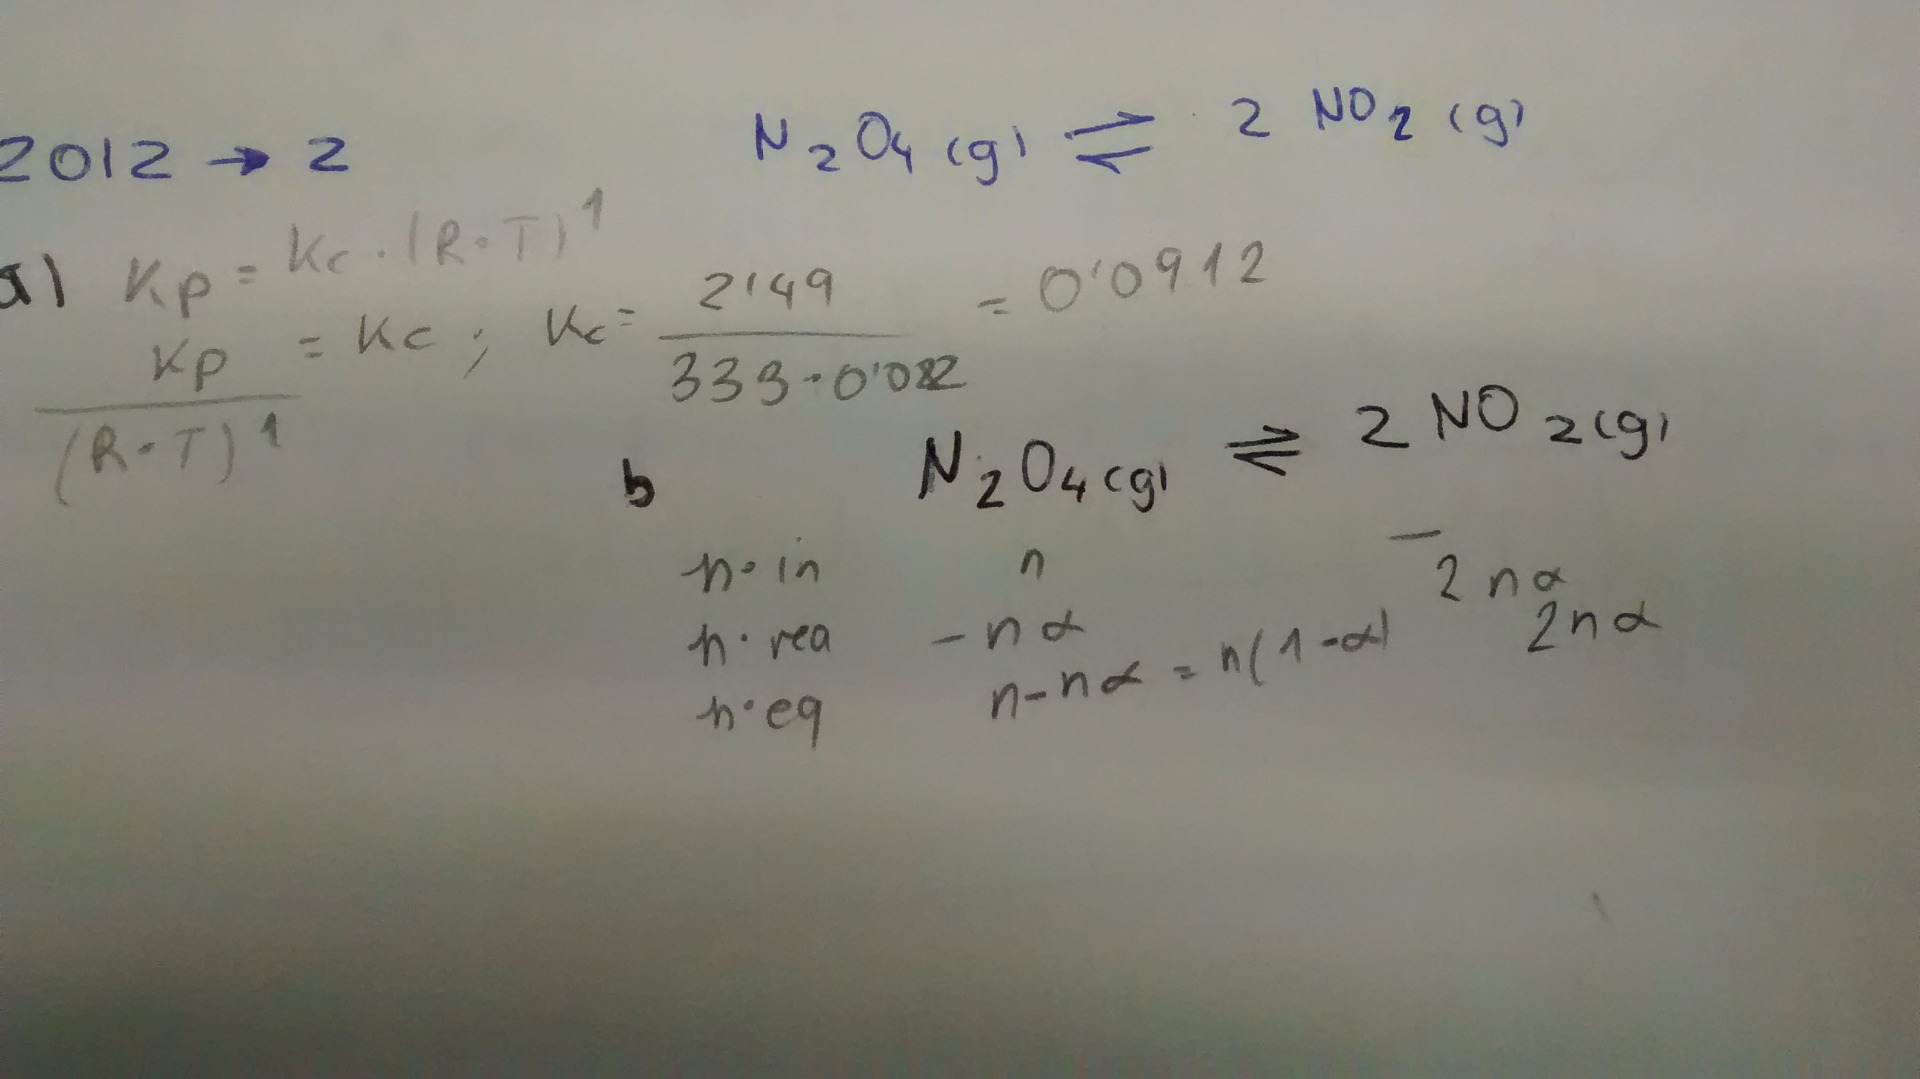 2012 → 2
N₂O₄ (g) ⇌ 2 NO₂ (g)
a) Kp = Kc · (R·T)¹
Kp / (R·T)¹ = Kc ; Kc = 2'49 / 333·0'082 = 0'0912
b N₂O₄ (g) ⇌ 2 NO₂ (g)
n·in n —
n·rea -nα 2nα
n·eq n-nα = n(1-α) 2nα